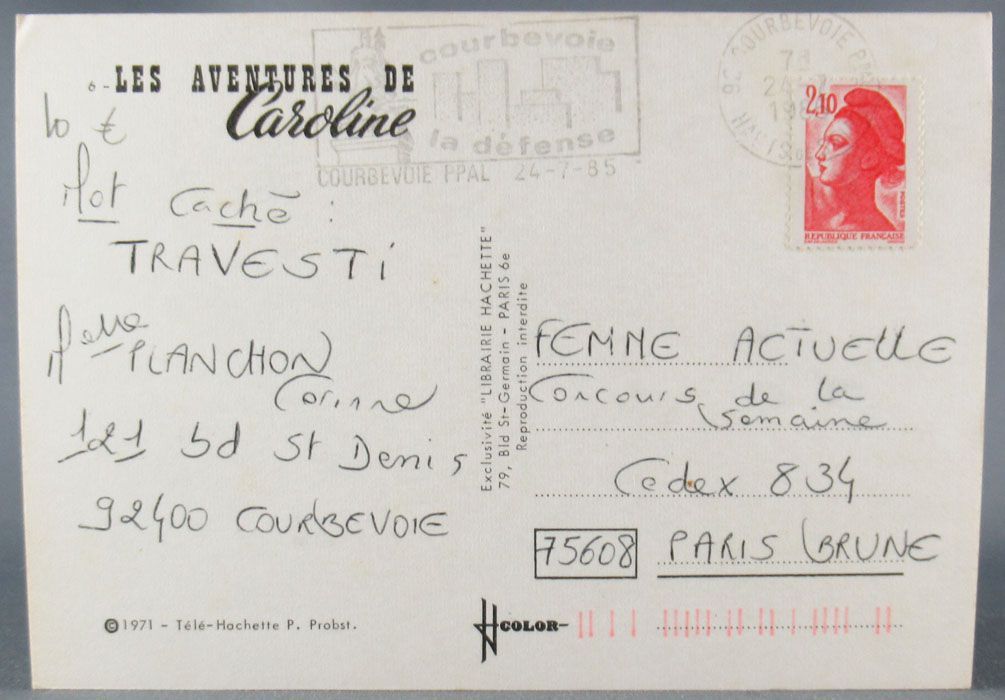 6 - LES AVENTURES DE
Caroline
10 €
Mot Caché :
TRAVESTI
Melle PLANCHON
Corinne
121 bd St Denis
92400 COURBEVOIE
©1971 - Télé-Hachette P. Probst.
courbevoie
la défense
COURBEVOIE PPAL 24-7-85
92 COURBEVOIE PPAL
24
HAUTS
2,10
POSTES
REPUBLIQUE FRANÇAISE
Exclusivité "LIBRAIRIE HACHETTE"
79, Bld St-Germain - PARIS 6e
Reproduction interdite
FEMME ACTUELLE
Concours de la
Semaine
Cedex 834
75608 PARIS BRUNE
COLOR